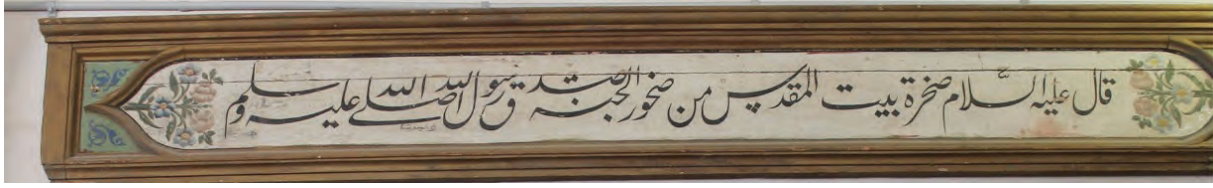 قال عليه السلام صخرة بيت المقدس من صخور الجنة صدق رسول الله صلى الله عليه وسلم